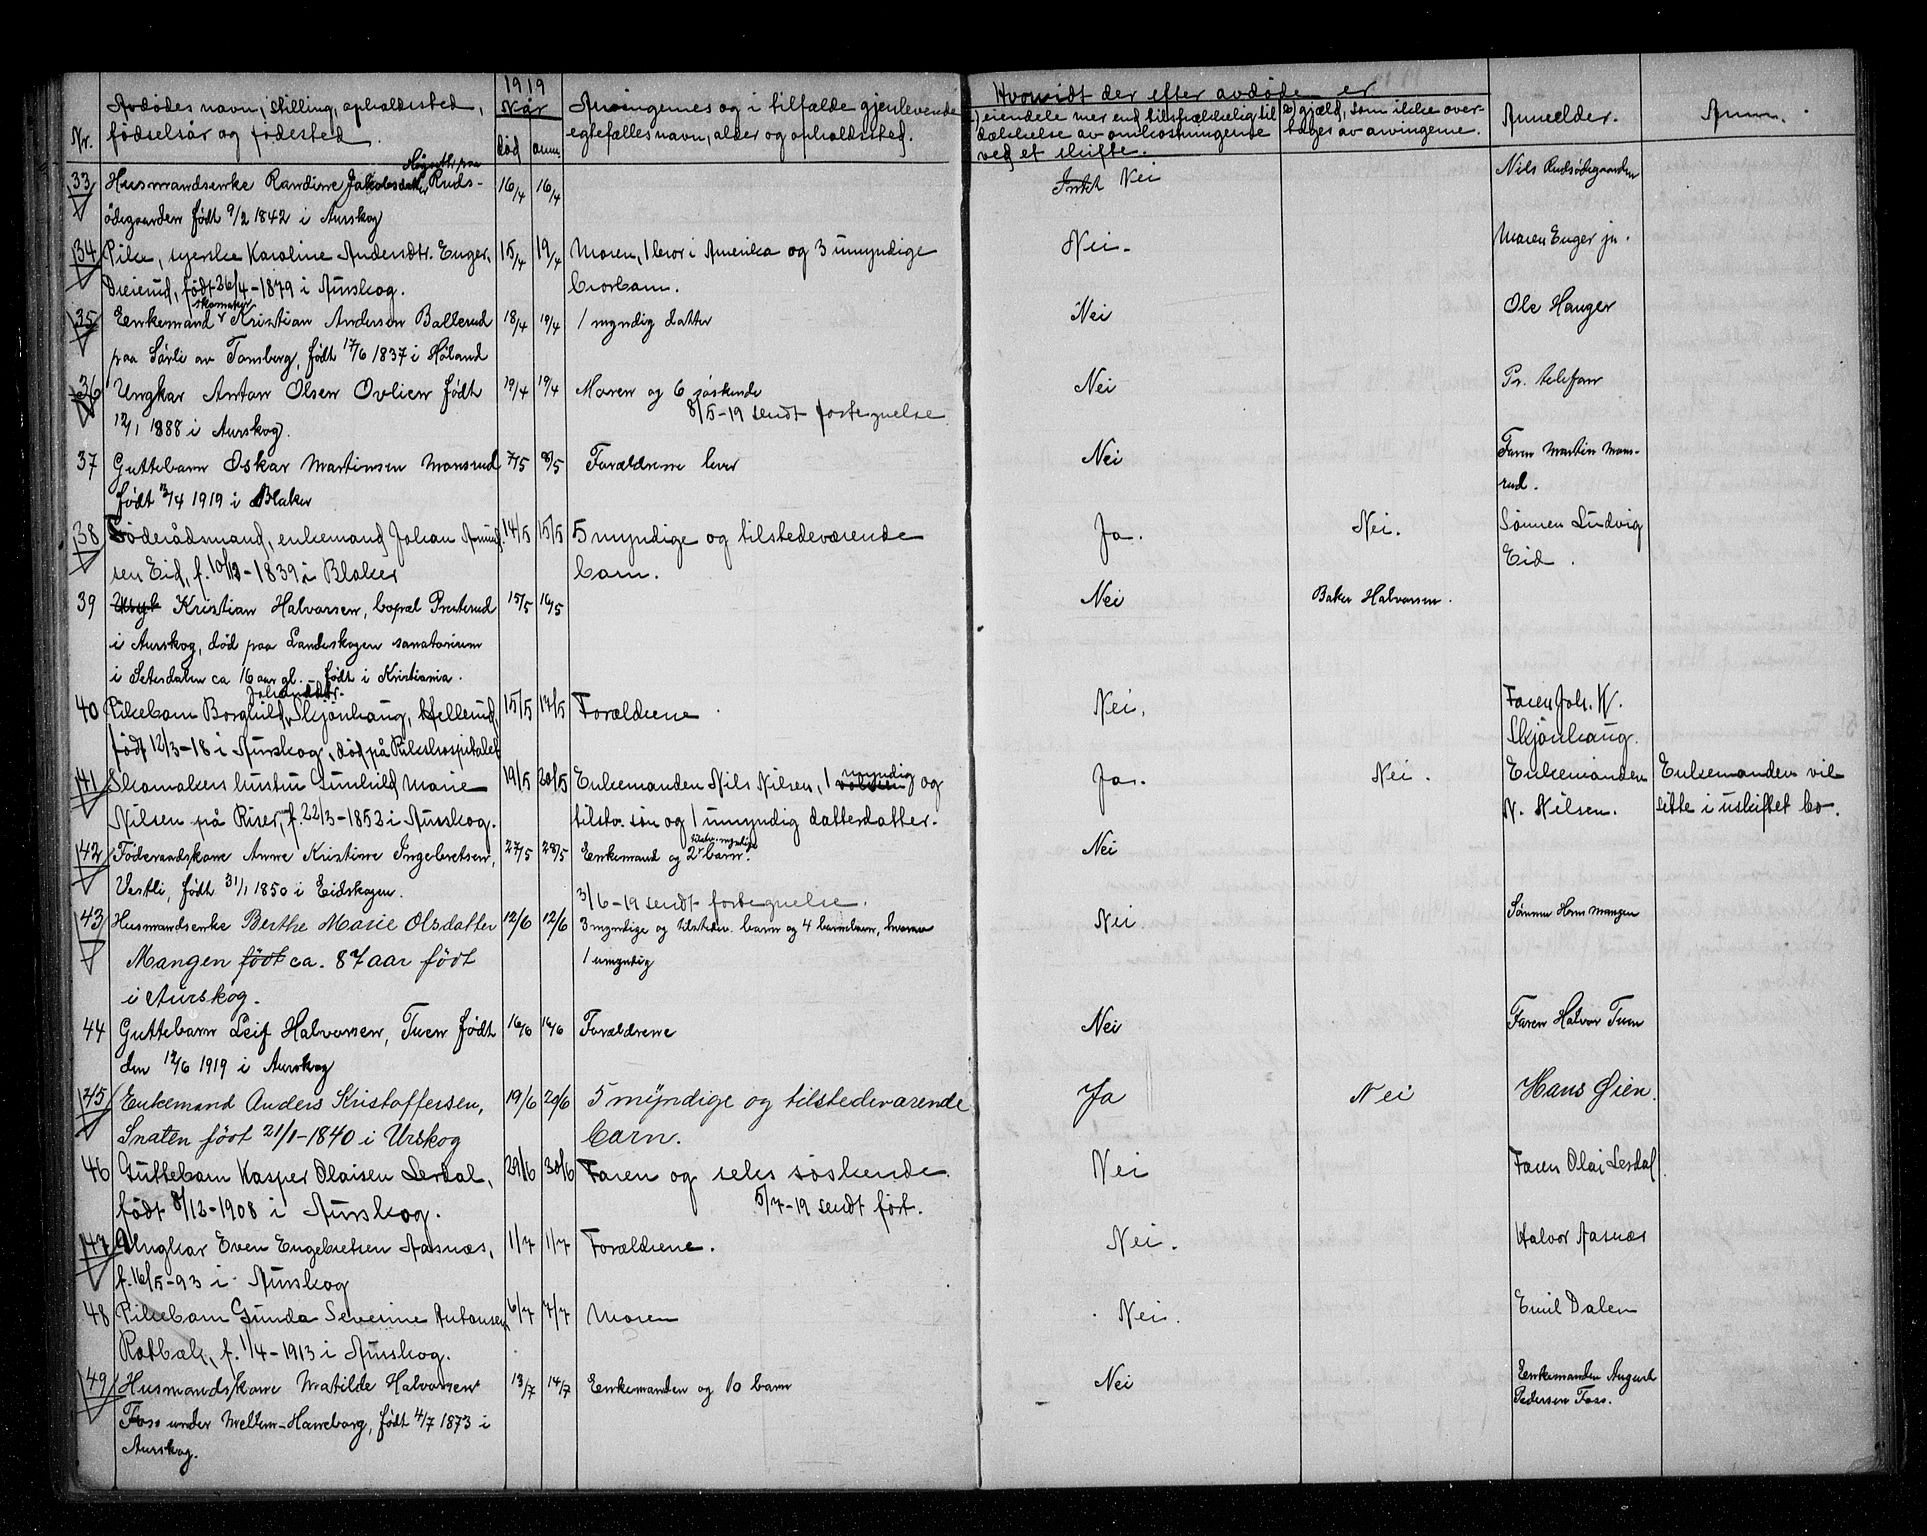 1919
Nr. Avdødes navn, stilling, opholdssted, Når Arvingernes og i tilfælde gjenlevende Hvorvidt der efter avdøde er Anmelder. Anm.
fødselsår og fødested. død anm. egtefælles navn, alder og opholdssted. eiendele mer end tilstrækkelig til 2) gjæld, som ikke over-
dækkelse av omkostningene tages av arvingerne.
ved et skifte.
33 Husmandsenke Randine Jakobsdatter Ruds- 16/4 16/4 Nei Nils Rudsødegaarden
ødegaarden født 9/2 1842 i Aurskog
34 Pike, syerske Karoline Andersdtr. Enger, 15/4 19/4 Moren, 1 bror i Amerika og 3 umyndige Nei. Maren Enger jn.
Dreierud, født 26/4-1879 i Aurskog. brorbarn.
skomaker
35 Enkemand Kristian Andersen Ballerud 18/4 19/4 1 myndig datter Nei Ole Hauger
paa Sørli av Tomberg, født 17/6 1837 i Høland
36 Ungkar Anton Olsen Ovlien født 19/4 19/4 Moren og 6 søskende Nei Pr. telefon
12/1 1888 i Aurskog. 8/5-19 sendt fortegnelse
37 Guttebarn Oskar Martinsen Monsrud 7/5 8/5 Forældrene lever Nei Faren Martin Mons-
født 3/4 1919 i Blaker rud.
38 Føderådsmand, enkemand Johan Amund- 14/5 15/5 5 myndige og tilstedeværende Ja. Nei. Sønnen Ludvig
sen Eid, f. 10/12-1839 i Blaker barn. Eid.
39 Kristian Halvorsen, bopæl Presterud 15/5 16/5 Nei Baker Halvorsen.
i Aurskog, død paa Landeskogen sanatorium
i Setesdalen ca 16 aar gl. - født i Kristiania.
Johansdtr.
40 Pikebarn Borghild Skjønhaug, Hellerud, 15/5 17/5 Forældrene Nei. Faren Joh. K.
født 12/3-18 i Aurskog, død på Rikshospitalet Skjønhaug.
41 Skomakers hustru Gunhild Marie 19/5 20/5 Enkemanden Nils Nilsen, 1 voksen myndig og Ja. Nei. Enkemanden Enkemanden vil
Nilsen på Riser, f. 22/3-1852 i Aurskog. tilstv. søn og 1 umyndig datterdatter. N. Nilsen. sitte i uskiftet bo.
42 Føderaadskone Anne Kristine Ingebretsen, 27/5 28/5 Enkemand og 2 tilstv. myndige barn. Nei
Vestli, født 31/1 1850 i Eidskogen. 3/6-19 sendt fortegnelse.
43 Husmandsenke Berthe Marie Olsdatter 12/6 12/6 3 myndige og tilstedev. barn og 4 barnebarn, hvorav Nei. Sønnen Hans Mangen
Mangen født ca. 87 aar født 1 umyndig
i Aurskog.
44 Guttebarn Leif Halvorsen, Tuen født 16/6 16/6 Forældrene Nei Faren Halvor Tuen
den 12/6 1919 i Aurskog
45 Enkemand Anders Kristoffersen, 19/6 20/6 5 myndige og tilstedevarende Ja Nei Hans Øien.
Snaten født 21/1-1840 i Urskog barn.
46 Guttebarn Kasper Olaisen Lerdal, 29/6 30/6 Faren og seks søskende. Nei Faren Olai Lerdal.
født 8/12-1908 i Aurskog. 5/7-19 sendt fort.
47 Ungkar Even Engebretsen Aasnæs, 1/7 1/7 Forældrene. Nei. Halvor Aasnæs
f. 16/5-93 i Aurskog
48 Pikebarn Gunda Severine Antonsen 6/7 7/7 Moren Nei. Emil Dalen
Rotbæk, f. 1/4-1913 i Aurskog.
49 Husmandskone Matilde Halvorsen 13/7 14/7 Enkemanden og 10 barn Nei Enkemanden August
Foss under Mellem-Haneborg, født 4/7 1873 i Pedersen Foss.
Aurskog.